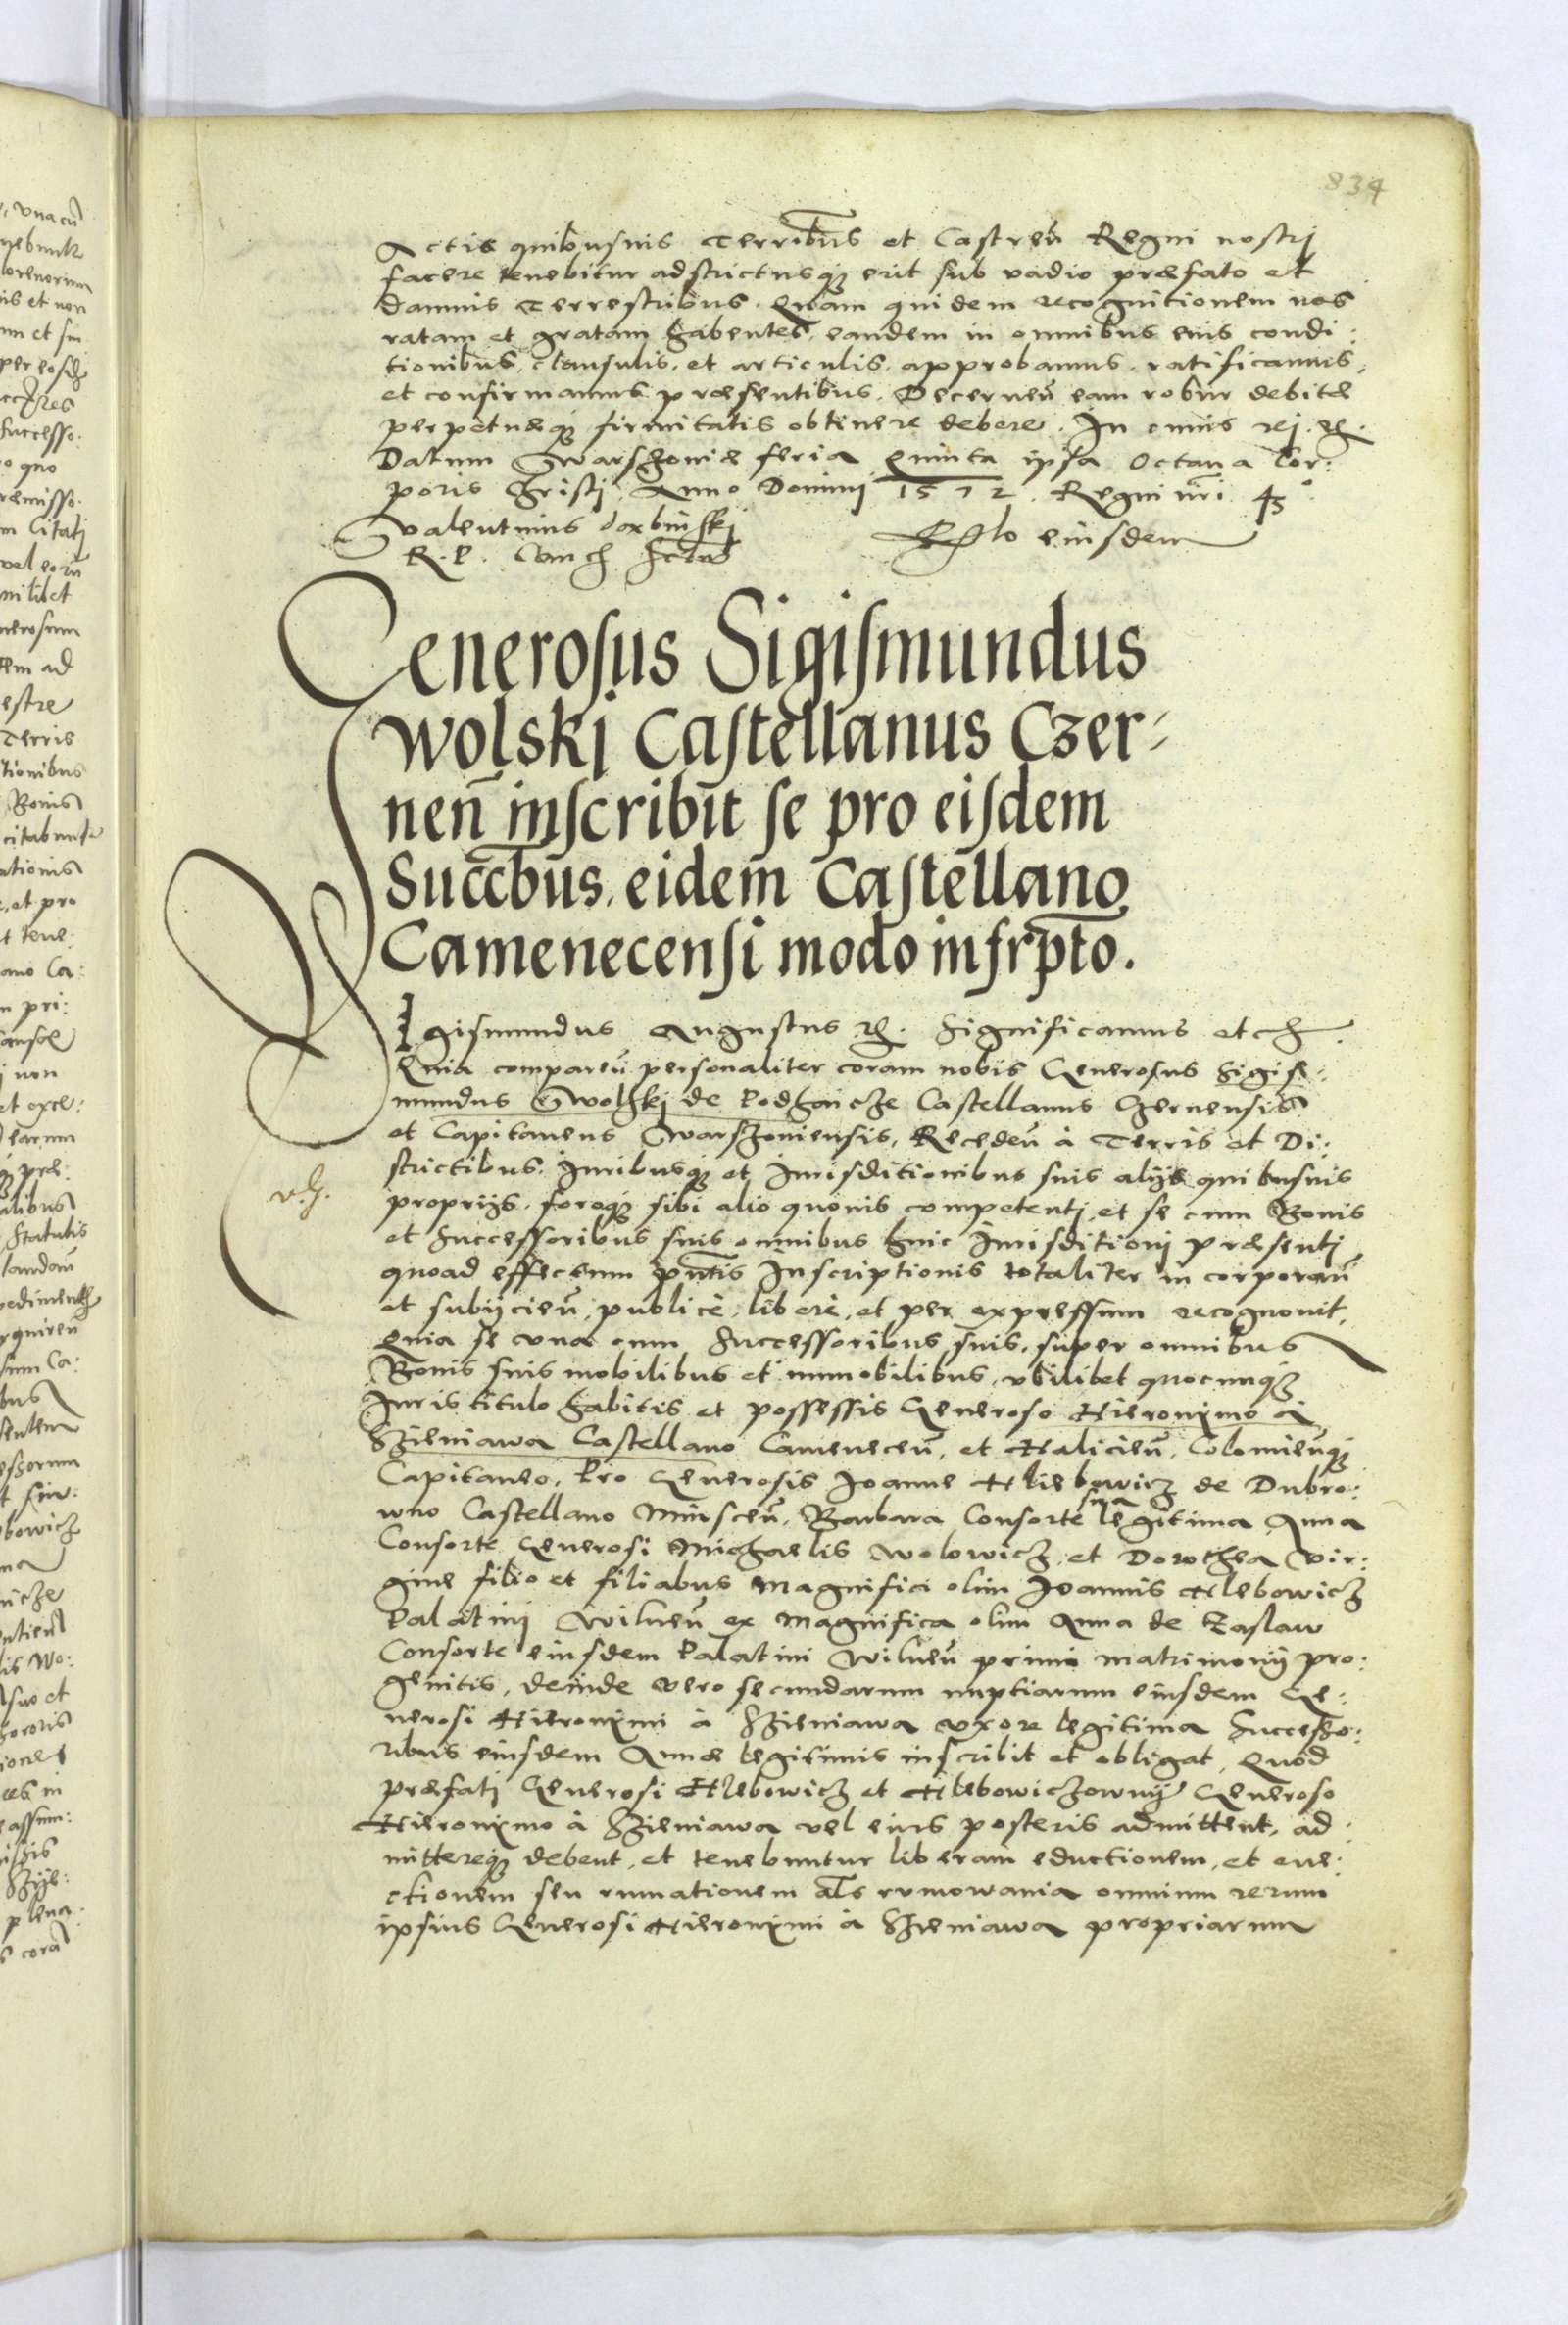 834
Actis quibusuis Terribus et Castreñ Regni nostrj
facere tenebitur adstrictusqȝ erit sub vadio præfato et
damnis Terrestribus. Quam quidem recognitionem nos
ratam et gratam habentes, eandem in omnibus eius condi:
tionibus, clausulis, et articulis, approbamus, ratificamus,
et confirmamus præsentibus. Decerneñ eam robur debitæ
perpetuæqȝ firmitatis obtinere debere. In cuius rej. &.
Datum Warschouiæ feria Quinta ipsa Octaua Cor:
poris Christj Anno Domini 1572. Regni nrĩ 43°.
Valentinus Dȩbinskj
R. P. Canc
Rlo eiusdem
Generosus Sigismundus
Wolskj Castellanus Czer-
neñ inscribit se pro eisdem
Succbus. eidem Castellano
Camenecensi modo infrpto.
SIgismundus Augustus &. Significamus etc.
Quia compareñ personaliter coram nobis Generosus Sigis:
mundus Wolskj de Podhaicze Castellanus Czernensis
et Capitaneus Warschouiensis, Recedeñ à Terris et Di:
strictibus, Iuribusqȝ et Iurisditionibus suis alijs quibusuis
proprijs, foroqȝ sibi alio quouis competentj, et se cum Bonis
et Successoribus suis omnibus huic Iurisditionj præsentj
quoad effectum pñtis Inscriptionis totaliter incorporañ
et subijcieñ, publicè, liberè, et per expressum recognouit,
Quia se vna cum Successoribus suis, super omnibus
Bonis suis mobilibus et immobilibus, vbilibet quocunqȝ
Iuris titulo habitis et possessis Generoso Hieronimo à
Szieniawa Castellano Cameneceñ, et Halicieñ, Colomieñqȝ
Capitaneo, Pro Generosis Ioanne Hliebowicz de Dubro:
wno Castellano Minsceñ, Barbara Consorte sua legitima Anna
Consorte Generosi Michaelis Wolowicz, et Dorothea Vir:
gine filio et filiabus Magnifici olim Ioannis Hlebowicz
Palatini Vilneñ ex Magnifica olim Anna de Zaslaw
Consorte eiusdem Palatini Vilneñ primi matrimonij pro:
genitis, deinde vero secundarum nuptiarum eiusdem Ge:
nerosi Hieronimi à Szieniawa vxore legitima Successo:
ribus eiusdem Annæ legitimis inscribit et obligat, Quòd
præfatj Generosi Hlebowicz et Hlebowiczowny Generoso
Hieronimo à Szieniawa vel eius posteris admittent, ad:
mittereqȝ debent, et tenebuntur liberam eductionem, et eue:
ctionem seu rumationem als rvmowania omnium rerum
ipsius Generosi Hieronimi à Szieniawa propriarum